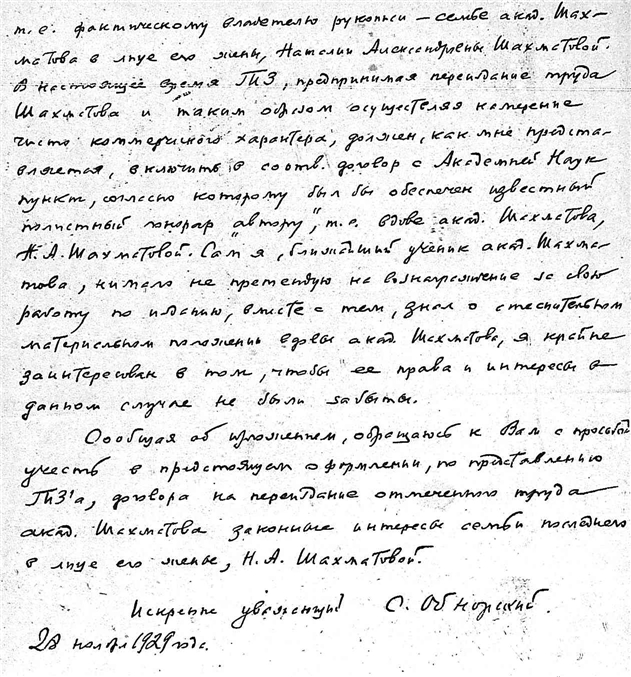 т. е. фактическому владетелю рукописи — семье акад. Шах-
матова в лице его жены, Наталии Александровны Шахматовой.
В настоящее время ГИЗ, предпринимая переиздание труда
Шахматова и таким образом осуществляя намерение
чисто коммерчского характера, должен, как мне предста-
вляется, включить в соотв. договор с Академией Наук
пункт, согласно которому был бы обеспечен известный
полистный гонорар "автору", т. е. вдове акад. Шахматова,
Н. А. Шахматовой. Сам я, ближайший ученик акад. Шахма-
това, нимало не претендую на вознаграждение за свою
работу по изданию, вместе с тем, зная о стеснительном
материальном положении вдовы акад. Шахматова, я крайне
заинтересован в том, чтобы ее права и интересы в
данном случае не были забыты.
Сообщая об изложенном, обращаюсь к Вам с просьбой
учесть в предстоящем оформлении, по представлению
ГИЗ'а, договора на переиздание отмеченного труда
акад. Шахматова законные интересы семьи последнего
в лице его жены, Н. А. Шахматовой.
Искренне уважающий С. Обнорский.
28 ноября 1929 года.